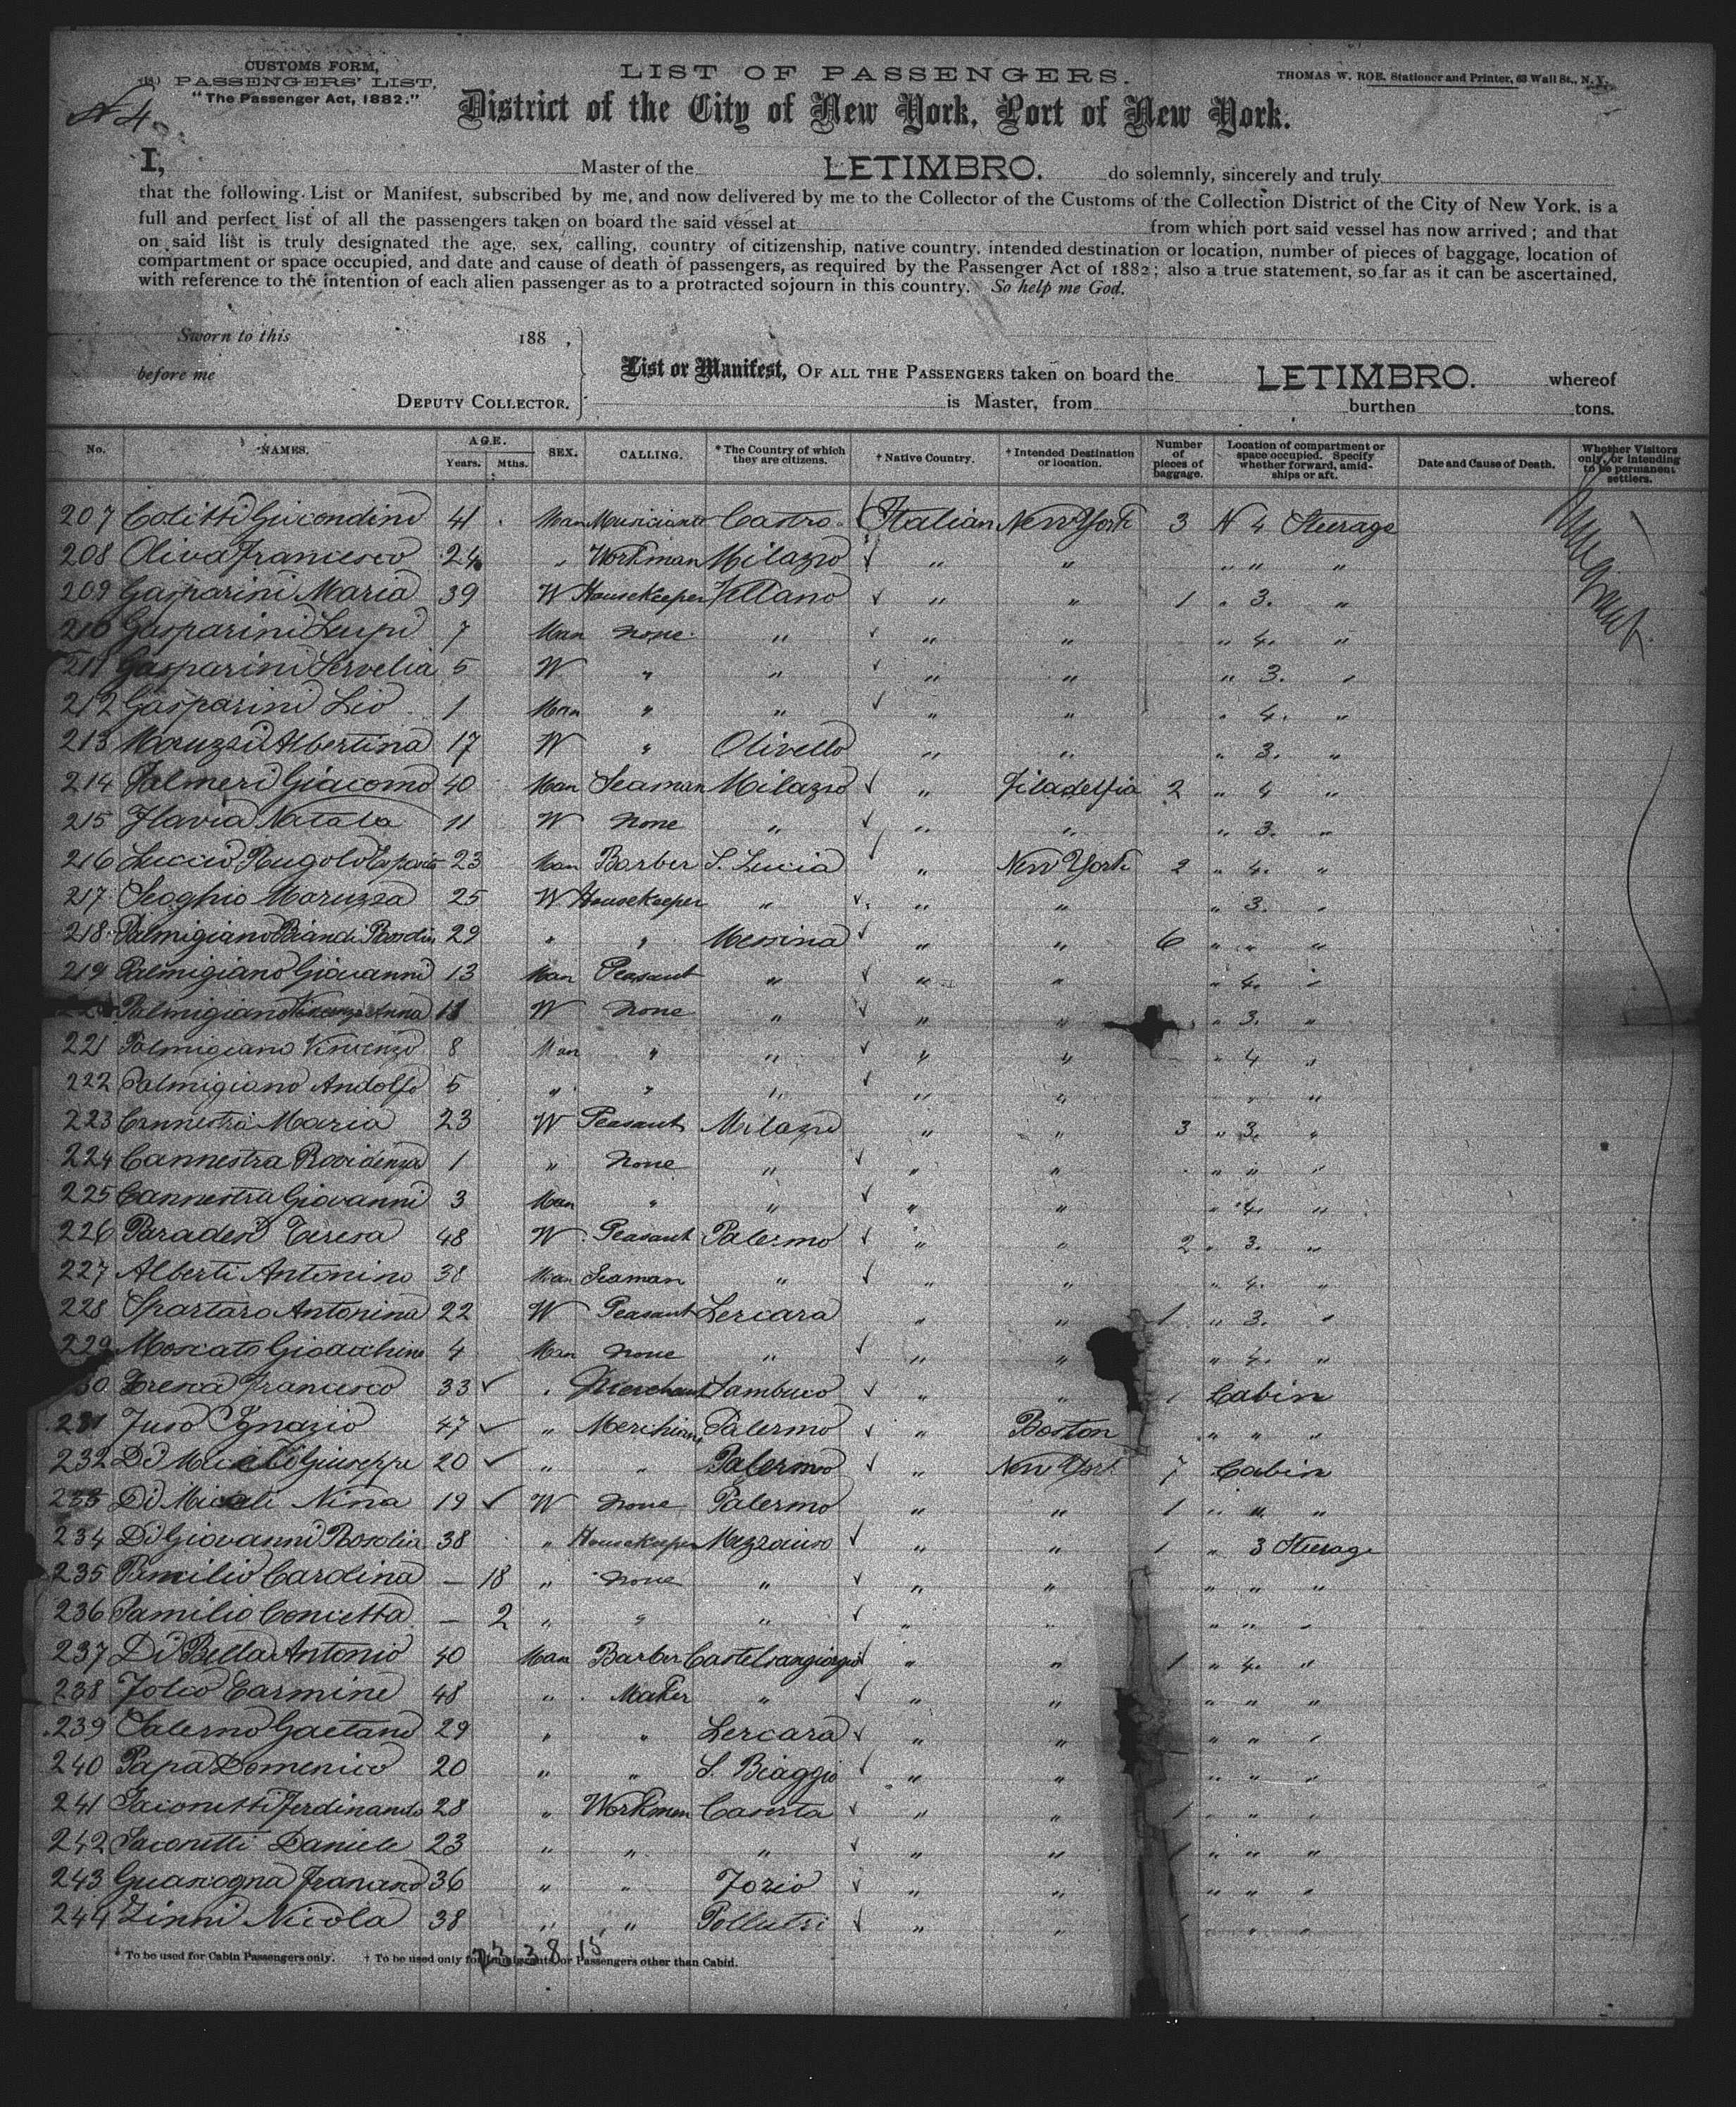 CUSTOMS FORM,
PASSENGERS' LIST,
"The Passenger Act, 1882."
N 4
LIST OF PASSENGERS.
THOMAS W. ROE, Stationer and Printer, 63 Wall St., N.Y.
District of the City of New York, Port of New York.
I, Master of the LETIMBRO. do solemnly, sincerely and truly
that the following List or Manifest, subscribed by me, and now delivered by me to the Collector of the Customs of the Collection District of the City of New York, is a
full and perfect list of all the passengers taken on board the said vessel at from which port said vessel has now arrived; and that
on said list is truly designated the age, sex, calling, country of citizenship, native country, intended destination or location, number of pieces of baggage, location of
compartment or space occupied, and date and cause of death of passengers, as required by the Passenger Act of 1882; also a true statement, so far as it can be ascertained,
with reference to the intention of each alien passenger as to a protracted sojourn in this country. So help me God.
Sworn to this 188 ,
before me
DEPUTY COLLECTOR.
List or Manifest, OF ALL THE PASSENGERS taken on board the LETIMBRO. whereof
is Master, from burthen tons.
No. NAMES. AGE. Years. Mths. SEX. CALLING. * The Country of which they are citizens. † Native Country. † Intended Destination or location. Number of pieces of baggage. Location of compartment or space occupied. Specify whether forward, amidships or aft. Date and Cause of Death. Whether Visitors only, or intending to be permanent settlers.
207 Colitti Giocondino 41 Man Musicians Castro Italian New York 3 N 4 Steerage
208 Oliva Francesco 24 " Workman Milazzo " " " " "
209 Gasparini Maria 39 W Housekeeper Vellano " " 1 " 3. "
210 Gasparini Luipi 7 Man None " " " " 4. "
211 Gasparini Servelia 5 W " " " " " 3. "
212 Gasparini Lio 1 Man " " " " " 4. "
213 Moruzzi Albertina 17 W " Olivello " " " 3. "
214 Palmeri Giacomo 40 Man Seaman Milazzo " Filadelfia 2 " 4 "
215 Flavia Natala 11 W None " " " " 3. "
216 Luccio Rugolo 23 Man Barber S. Lucia " New York 2 " 4. "
217 Scoghio Maruzza 25 W Housekeeper " " " " 3. "
218 Palmigiano 29 " " Messina " " 6 " " "
219 Palmigiano Giovanni 13 Man Peasant " " " " 4. "
Palmigiano Anna 11 W None " " " " 3. "
221 Palmigiano Vincenzo 8 Man " " " " " 4 "
222 Palmigiano Andolfo 5 " " " " " " "
223 Cannestra Maria 23 W Peasant Milazzo " " 3 " 3. "
224 Cannestra Providenza 1 " None " " " " " "
225 Cannestra Giovanni 3 Man " " " " " 4. "
226 Teresa 48 W Peasant Palermo " " 2 " 3. "
227 Alberti Antonino 38 Man Seaman " " " " 4. "
228 Spartaro Antonina 22 W Peasant Lercara " " 1 " 3. "
229 Moscato Gioacchino 4 Man None " " " " 4. "
30 Francesco 33 " Merchant Sambuco " " 1 Cabin
231 Fuso Ignazio 47 " Merchant Palermo " Boston " " "
232 Di Miceli Giuseppe 20 " " Palermo " New York 7 Cabin
233 Di Miceli Nina 19 W None Palermo " " 1 " " "
234 Di Giovanni Rosolia 38 " Housekeeper " " 1 " 3 Steerage
235 Pamilio Carolina — 18 " None " " " " " "
236 Pamilio Concetta — 2 " " " " " " " "
237 Di Bella Antonio 40 Man Barber Castelsangiorgio " " 1 " 4. "
238 Carmine 48 " Maker " " " " " "
239 Salerno Gaetano 29 " " Lercara " " " " "
240 Papa Domenico 20 " " S. Biaggio " " " " "
241 Saconetti Ferdinando 28 " Workman Caserta " " 1 " " "
242 Saconetti Daniele 23 " " " " " 1 " " "
243 36 " " Forio " " " " "
244 Zinni Nicola 38 " " Pollutri " " 1 " "
* To be used for Cabin Passengers only. † To be used only for Immigrants or Passengers other than Cabin.